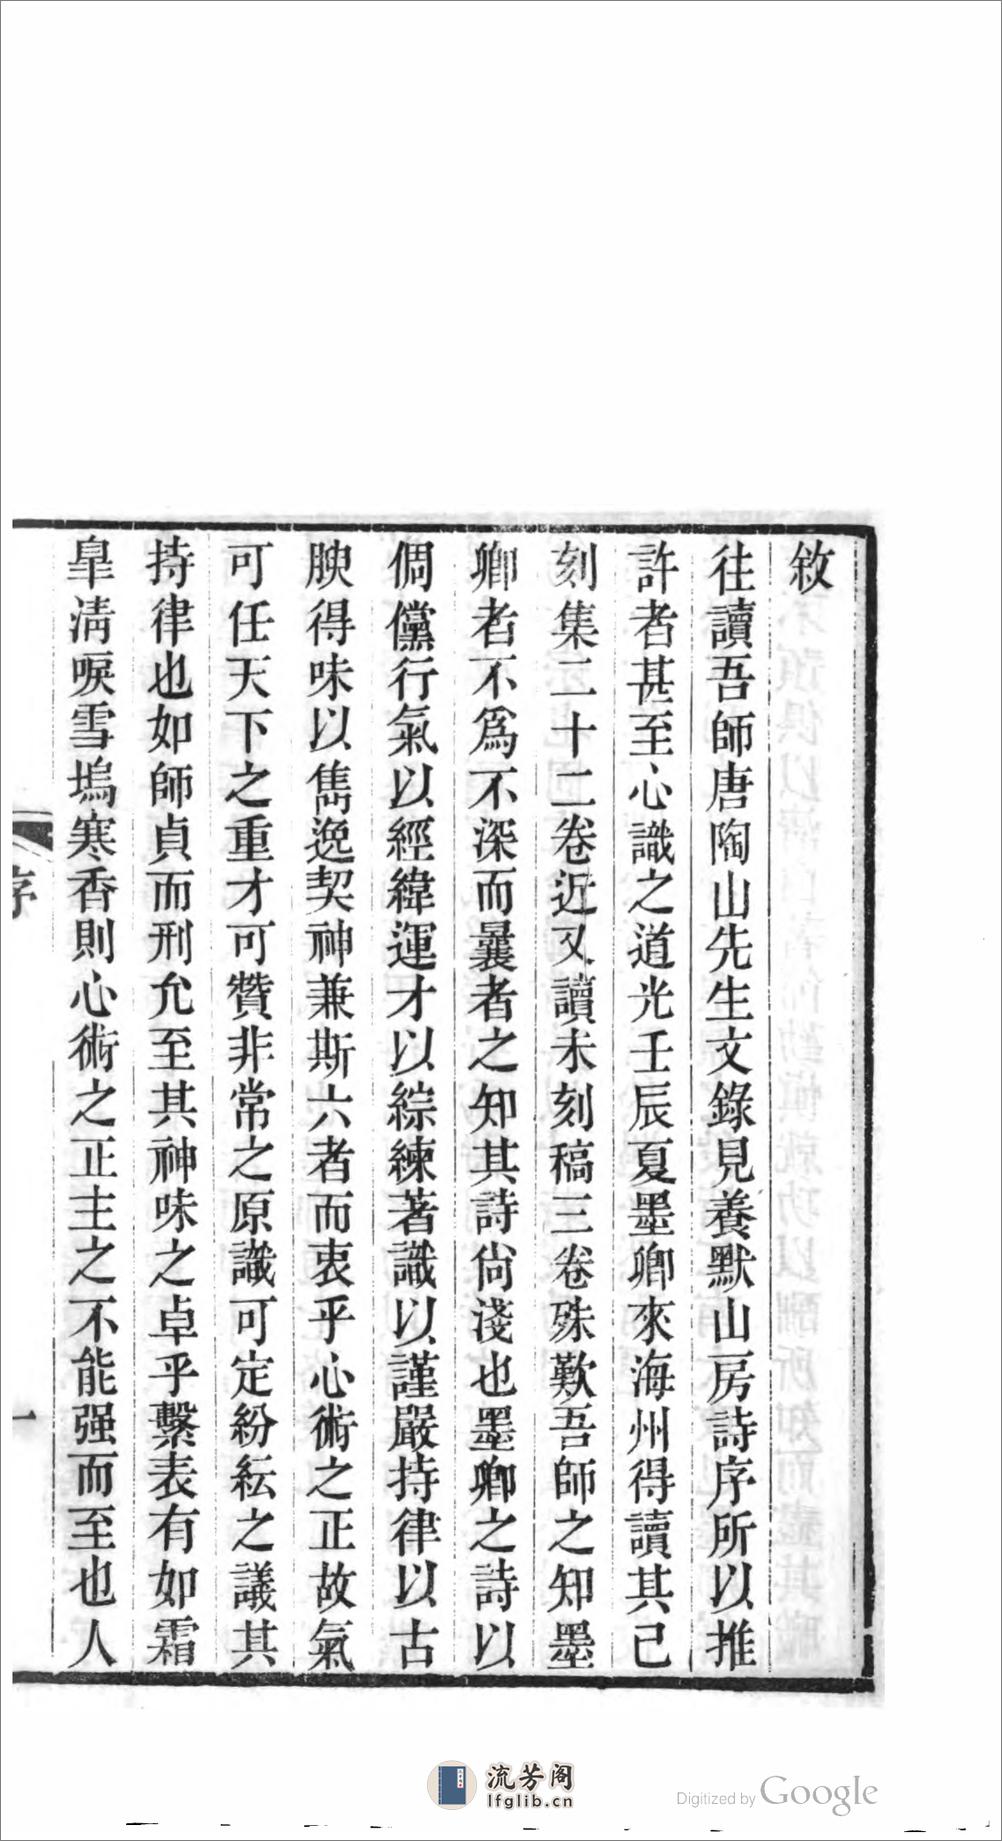 敘
往讀吾師唐陶山先生文錄見養默山房詩序所以推
許者甚至心識之道光壬辰夏墨卿來海州得讀其已
刻集二十二卷近又讀未刻稿三卷殊歎吾師之知墨
卿者不爲不深而曩者之知其詩尙淺也墨卿之詩以
倜儻行氣以經緯運才以綜練著識以謹嚴持律以古
腴得味以雋逸契神兼斯六者而衷乎心術之正故氣
可任天下之重才可贊非常之原識可定紛紜之議其
持律也如師貞而刑允至其神味之卓乎繫表有如霜
臯淸唳雪塢寒香則心術之正主之不能强而至也人
序
一
流芳阁
lfglib.cn
Digitized by Google